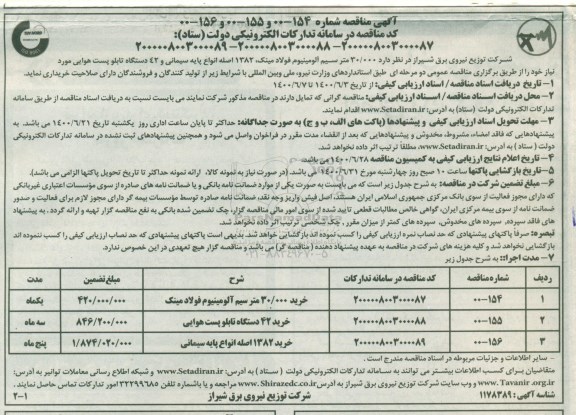 آگهی مناقصه شماره ۱۵۴-۰۰ و ۱۵۵-۰۰ و ۱۵۶-۰۰
کد مناقصه در سامانه تدارکات الکترونیکی دولت (ستاد):
۲۰۰۰۰۰۸۰۰۳۰۰۰۰۸۷-۲۰۰۰۰۰۸۰۰۳۰۰۰۰۸۸-۲۰۰۰۰۰۸۰۰۳۰۰۰۰۸۹
شرکت توزیع نیروی برق شیراز در نظر دارد ۳۰/۰۰۰ متر سیم آلومینیوم فولاد مینک، ۱۳۸۲ اصله انواع پایه سیمانی و ۴۲ دستگاه تابلو پست هوایی مورد
نیاز خود را از طریق برگزاری مناقصه عمومی دو مرحله ای طبق استانداردهای وزارت نیرو، ملی وبین المللی با شرایط زیر از تولید کنندگان و فروشندگان دارای صلاحیت خریداری نماید.
۱- تاریخ دریافت اسناد مناقصه/ اسناد ارزیابی کیفی: از تاریخ ۱۴۰۰/۶/۳ تا ۱۴۰۰/۶/۷
۲- محل دریافت اسناد مناقصه / اسناد ارزیابی کیفی: مناقصه گرانی که تمایل دارند در مناقصه مذکور شرکت نمایند می بایست نسبت به دریافت اسناد مناقصه از طریق سامانه
تدارکات الکترونیکی دولت (ستاد) به آدرس: www.Setadiran.ir اقدام نمایند.
۳- مهلت تحویل اسناد ارزیابی کیفی و پیشنهادها (پاکت های الف، ب و ج) به صورت جداگانه: حداکثر تا پایان ساعت اداری روز یکشنبه تاریخ ۱۴۰۰/۶/۲۱ می باشد. به
پیشنهادهایی که فاقد امضاء، مشروط، مخدوش و پیشنهادهایی که بعد از انقضاء، مدت مقرر در فراخوان واصل می شود و همچنین پیشنهادهای ثبت نشده در سامانه تدارکات الکترونیکی
دولت (ستاد) به آدرس: www.Setadiran.ir، مطلقا ترتیب اثر داده نخواهد شد.
۴- تاریخ اعلام نتایج ارزیابی کیفی به کمیسیون مناقصه ۱۴۰۰/۶/۲۸ می باشد.
۵- تاریخ بازگشایی پاکتها ساعت ۱۰ صبح روز چهارشنبه مورخ ۱۴۰۰/۶/۳۱ می باشد. (در صورت نیاز به نمونه کالا، ارائه نمونه حداکثر تا تاریخ تحویل پاکتها الزامی می باشد).
۶- مبلغ تضمین شرکت در مناقصه: به شرح جدول زیر است که می بایست به صورت یکی از موارد ضمانت نامه بانکی و یا ضمانت نامه های صادره از سوی مؤسسات اعتباری غیربانکی
که دارای مجوز فعالیت از سوی بانک مرکزی جمهوری اسلامی ایران هستند، اصل فیش واریز وجه نقد، ضمانت نامه صادره توسط مؤسسات بیمه گر دارای مجوز لازم برای فعالیت و صدور
ضمانت نامه از سوی بیمه مرکزی ایران، گواهی خالص مطالبات قطعی تایید شده از سوی امور مالی مناقصه گزار، چک تضمین شده بانکی به نفع مناقصه گزار تهیه و ارائه گردد. به پیشنهاد
های فاقد سپرده، سپرده های مخدوش، سپرده های کمتر از میزان مقرر، چک شخصی ترتیب اثر داده نخواهد شد.
تبصره: صرفا پاکتهای پیشنهادی که حد نصاب نمره ارزیابی کیفی را کسب نموده اند بازگشایی خواهد شد. بدیهی است پاکتهای پیشنهادی که حد نصاب ارزیابی کیفی را کسب ننموده اند
بازگشایی نخواهد شد و کلیه هزینه های شرکت در مناقصه به عهده پیشنهاد دهنده (مناقصه گر) می باشد و مناقصه گزار هیچ تعهدی در این خصوص ندارد.
۷- مدت اجرا: به شرح جدول زیر
ردیف شماره مناقصه کد مناقصه در سامانه تدارکات شرح مبلغ تضمین مدت
۱ ۱۵۴-۰۰ ۲۰۰۰۰۰۸۰۰۳۰۰۰۰۸۷ خرید ۳۰/۰۰۰ متر سیم آلومینیوم فولاد مینک ۴۲۰/۰۰۰/۰۰۰ یکماه
۲ ۱۵۵-۰۰ ۲۰۰۰۰۰۸۰۰۳۰۰۰۰۸۸ خرید ۴۲ دستگاه تابلو پست هوایی ۸۴۶/۲۰۰/۰۰۰ سه ماه
۳ ۱۵۶-۰۰ ۲۰۰۰۰۰۸۰۰۳۰۰۰۰۸۹ خرید ۱۳۸۲ اصله انواع پایه سیمانی ۱/۸۷۴/۰۲۰/۰۰۰ پنج ماه
- سایر اطلاعات و جزئیات مربوطه در اسناد مناقصه مندرج است.
متقاضیان برای کسب اطلاعات بیشتر می توانند به سامانه تدارکات الکترونیکی دولت (ستاد) به آدرس: www.Setadiran.ir و شبکه اطلاع رسانی معاملات توانیر به آدرس:
www.Tavanir.org.ir و وب سایت شرکت توزیع نیروی برق شیراز به آدرس www.Shirazedc.co.ir مراجعه و یا باشماره تلفن ۳۲۲۹۹۶۸۵ امور تدارکات تماس حاصل نمایند.
شناسه آگهی: ۱۱۷۸۳۸۹ شرکت توزیع نیروی برق شیراز ۲-۱